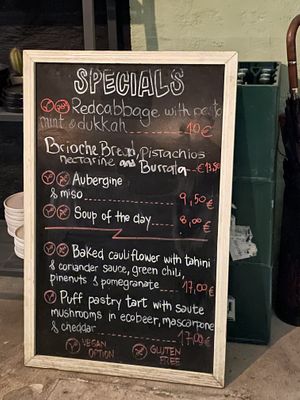 SPECIALS
Redcabbage with pesto
mint & dukkah 10€
Brioche Bread, Pistachios
nectarine and Burrata €13,50
Aubergine
& miso 9,50€
Soup of the day 8,00€
Baked cauliflower with tahini
& coriander sauce, green chili,
pinenuts & pomegranate 17,00€
Puff pastry tart with saute
mushrooms in ecobeer, mascarpone
& cheddar 17,00€
VEGAN OPTION
GLUTEN FREE